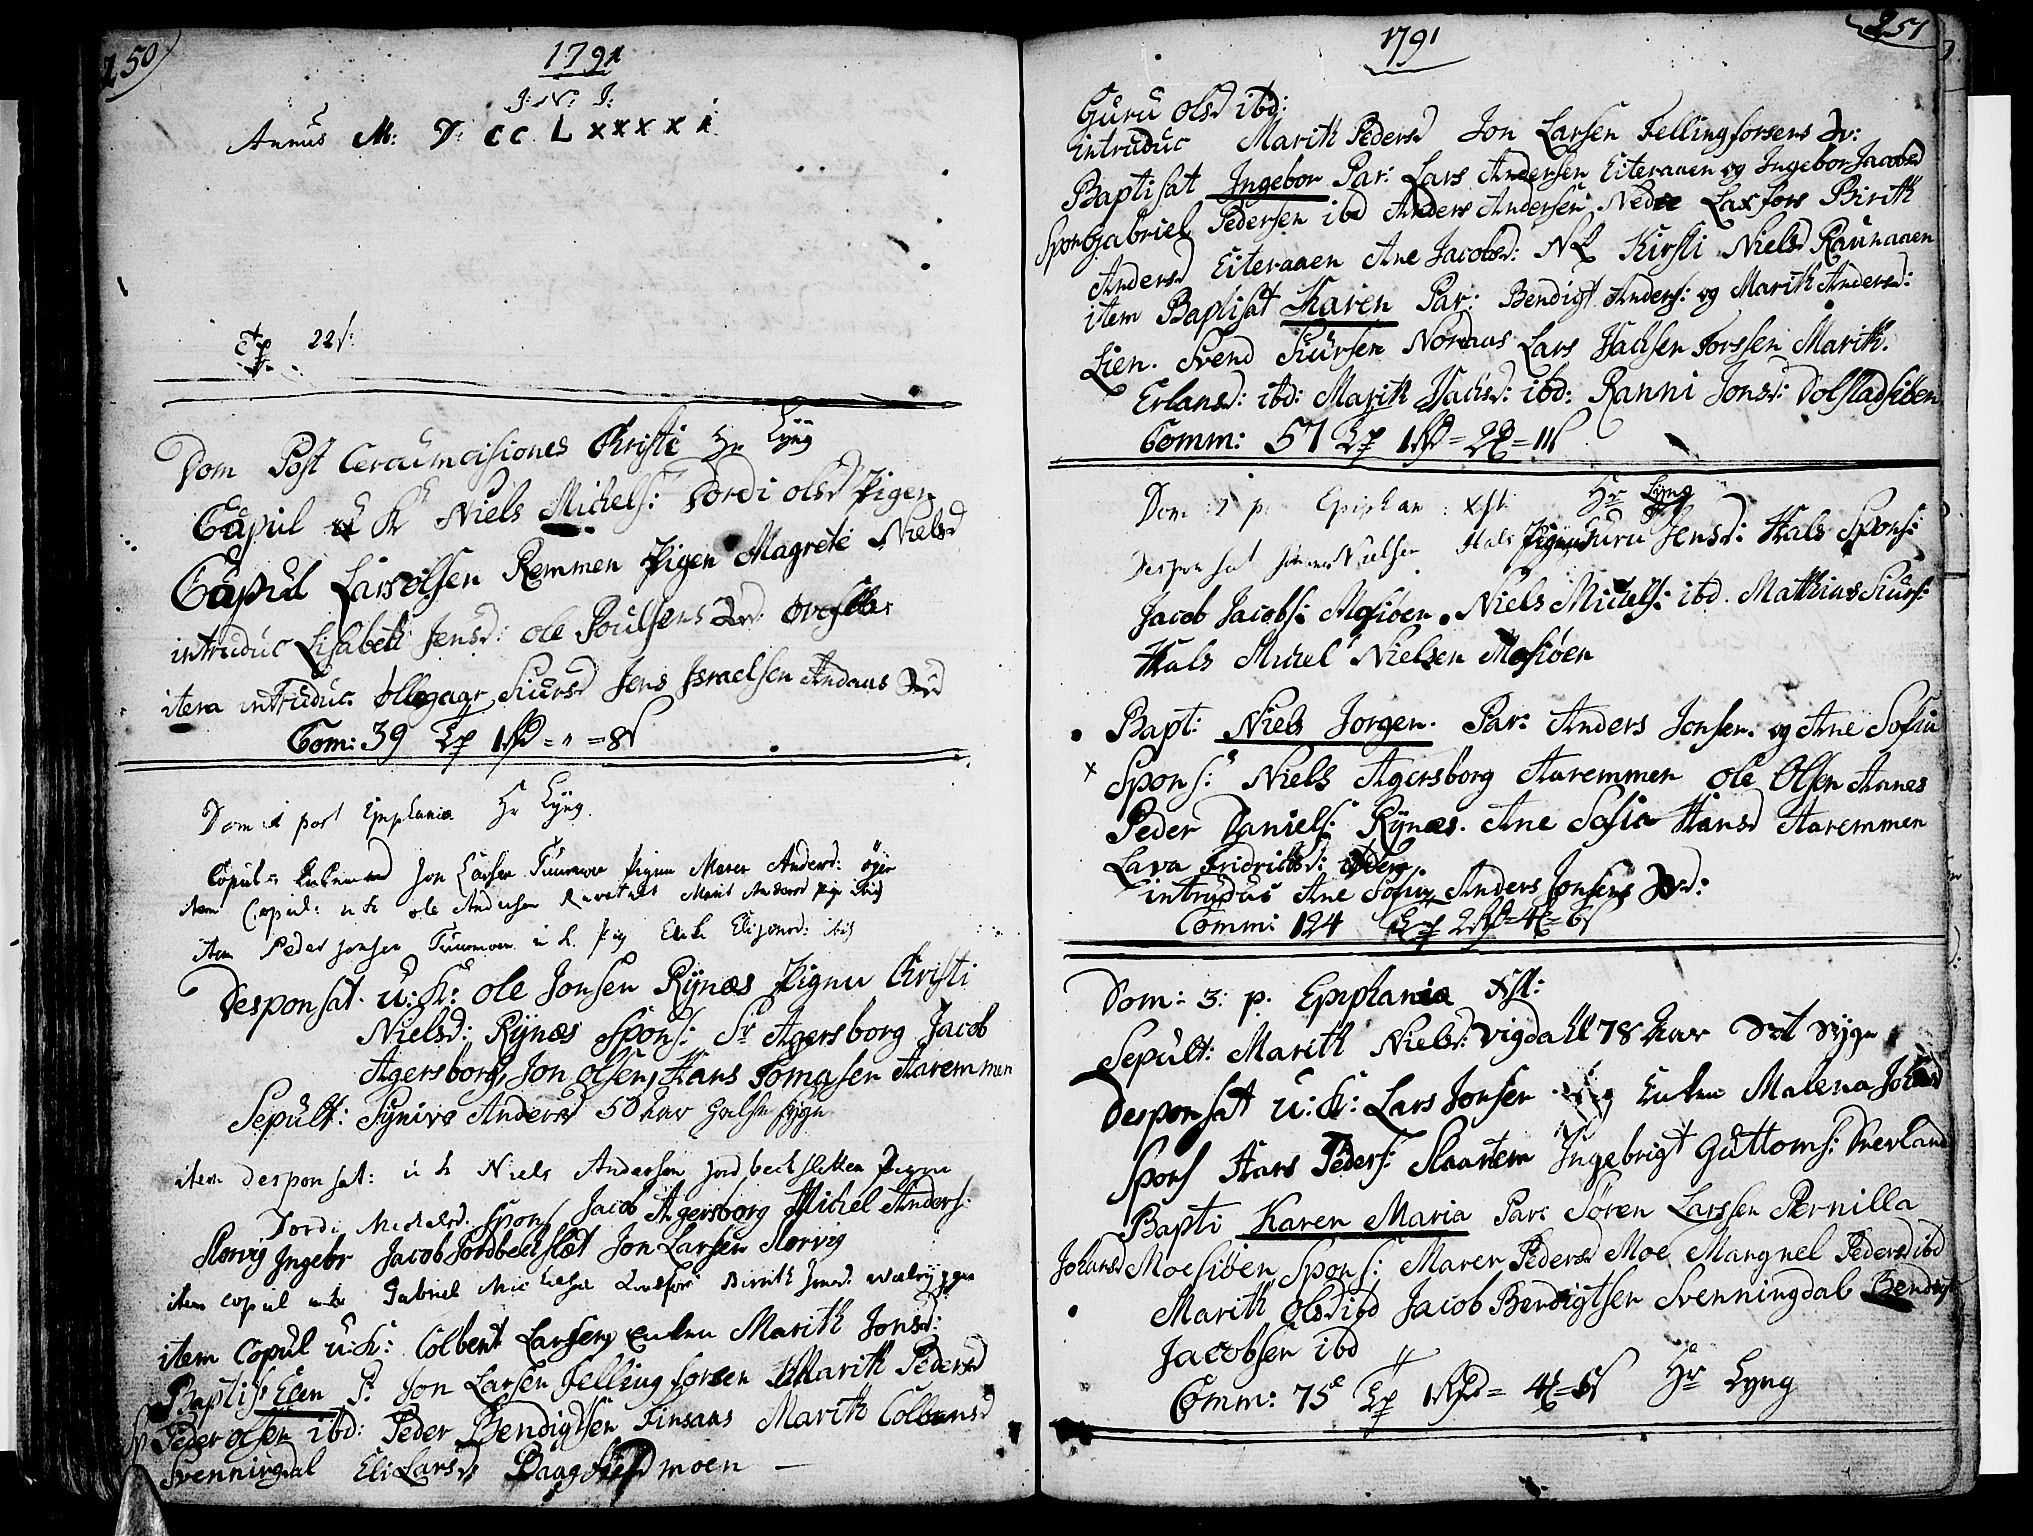 250
1791
J: N: J:
Annus M: D: CC L X X X X I
Tp 22 s:
Dom Post Circumcisiones Christi Hr Lyng
Copul u K Niels Michels: Tordi Olsd Pigen
Copul Lars Olsen Remmen Pigen Magrete Nielsd
intruduc Lisabeth Jensd: Ole Poulsens
item intruduc Ollegaar Siursd Jens Israelsen Andaas
Com: 39 Tp 1 = " = 8
Dom: 1 post Epiphania Hr Lyng
Copul: Enkemand Jon Larsen Pigen Maren Andersd:
item Copul: u k Ole Andersen Marit Andersd pig ibid
item Peder Jonsen u k. Pig ibid
Desponsat. u: K: Ole Jonsen Rynæs Pigen Christi
Nielsd: Rynæs Spons: Sr Agersborg Jacob
Agersborg, Jon Olsen, Hans Tomasen Aaremmen
Sepult: Synive Andersd 50 Aar
item desponsat: u k Niels Andersen Jordbechsletten Pigen
Tordi Michelsd. Spons Jacob Agersborg Michel Anders:
Storvig Ingebr Jacob Jordbechslet Jon Larsen Storvig
item Copul u k Gabriel Michelsen Laxfors Birith Jonsd:
item Copul u: K: Colbent Larsen, Enken Marith Jonsd:
Baptis: Elen P: Jon Larsen Fellingforsen Marith Pedersd
Sp Peder Olsen ibd: Peder Bendigtsen Finsaas Marith Colbensd
Svenningdal Eli Larsd moen —
251
1791
Guru Olsd ibd:
intruduc Marith Pedersd Jon Larsen Fellingforsens
Baptisat Ingebor Par: Lars Andersen Eiteraaen og Ingebor Jacobsd
Spon Gabriel Pedersen ibd Anders Andersen Nedre Laxfors Birith
Andersd Eiteraaen Ane Jacobsd: N L Kirsti Nielsd Raunaaen
item Baptisat Karen Par: Bendigt Anders: og Marith Andersd:
Lien. Svend Siursen Nordaas Lars Isachsen Forssen Marith.
Erlansd: ibd: Marith Isachsd: ibd: Ranni Jonsd: Dolstadseiben
Comm: 57 Tp 1 = 2 = 11
Dom: 2 p. Epiphan: Xsti Hr Lyng
Desponsat Nielsen Hals Pigen Guru Jensd: Hals Spons:
Jacob Jacobs: Mosiøen. Niels Michels: ibd. Matthias Siurs:
Hals Michel Nielsen Mosiøen
Bapt: Niels Jorgen. Par: Anders Jonsen. og Ane Sofia
x Spons: Niels Agersborg Aaremmen Ole Olsen Aanes
Peder Daniels: Rynæs. Ane Sofia Hansd Aaremmen
Lava Fridrichsd: ibden
intruduc Ane Sofia Anders Jonsens
Comm: 124 Tp 2 = 4 = 6
Dom: 3: p. Epiphania Xsti:
Sepult: Marith Nielsd: Vigdahl 78 Aar
Desponsat u: K: Lars Jonsen Enken Malena Johansd
Spons Hans Peders: Ingebrigt Guttoms:
Bapti Karen Maria Par: Søren Larssen Pernilla
Johansd Moesiøen Spons: Maren Pedersd Moe Mangnel Pedersd ibd
Marith Olsd ibd Jacob Bendigtsen Svenningdal Bendigt
Jacobsen ibd
Comm: 75 Tp 1 = 4 = 6 Hr Lyng